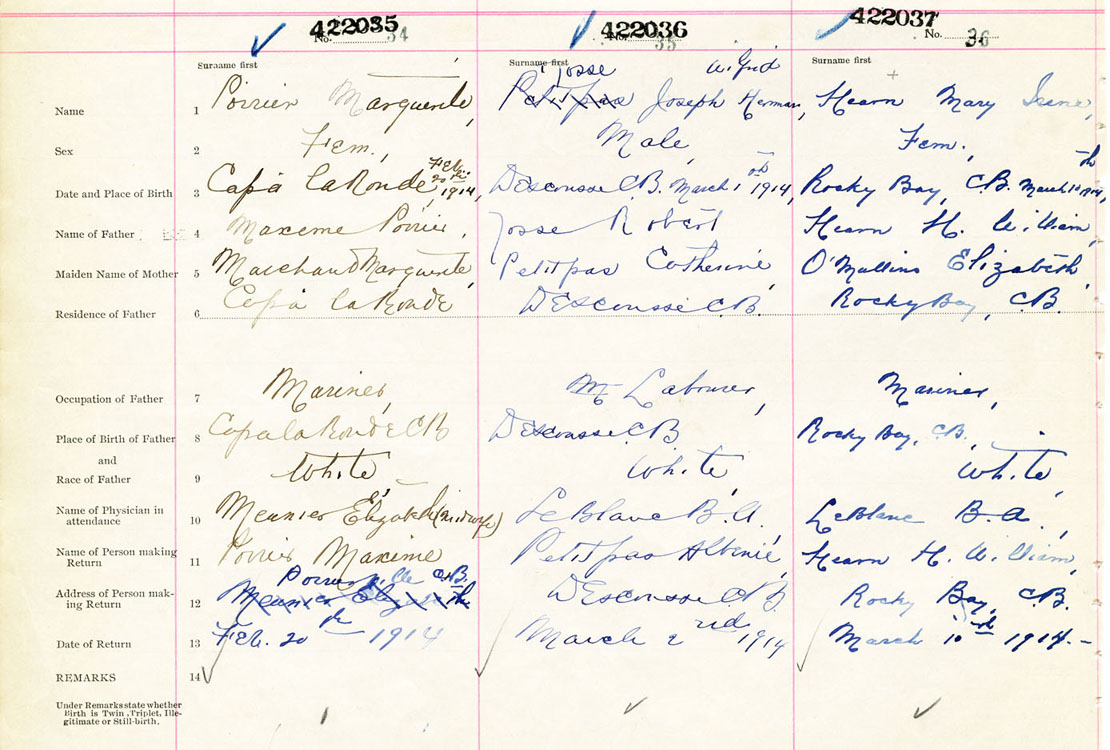 422035 422036 422037
No. 34 No. 35 No. 36
Surname first Surname first Surname first
Josse Wifrid
Name 1 Poirier Marguerite, Petitpas Joseph Herman, Hearn Mary Irene,
Sex 2 Fem., Male, Fem.,
Date and Place of Birth 3 Capa LaRonde, Feb. 20th 1914, DEscousse C.B. March 1st 1914, Rocky Bay, C.B. March 1st 1914,
Name of Father 4 Maxeme Poirier, Josse Robert Hearn H. William,
Maiden Name of Mother 5 Marchand Marguerite, Petitpas Catherine, O'Mullins Elizabeth,
Residence of Father 6 Capa LaRonde DEscousse C.B. Rocky Bay, C.B.
Occupation of Father 7 Mariner, M Labourer, Mariner,
Place of Birth of Father 8 Capa la Ronde CB DEscousse C.B Rocky Bay, C.B.,
and
Race of Father 9 White, White, White,
Name of Physician in
attendance 10 Meunier Elizabeth (midwife) LeBlanc B.A. LeBlanc B.A.,
Name of Person making
Return 11 Poirier Maxime Petitpas Albenie, Hearn H. William,
Poirierville C.B.
Address of Person mak-
ing Return 12 Meunier Elizabeth DEscousse C.B Rocky Bay, C.B.
Date of Return 13 Feb. 20th 1914 March 2nd 1914 March 10th 1914.-
REMARKS 14
Under Remarks state whether
Birth is Twin, Triplet, Ille-
gitimate or Still-birth.